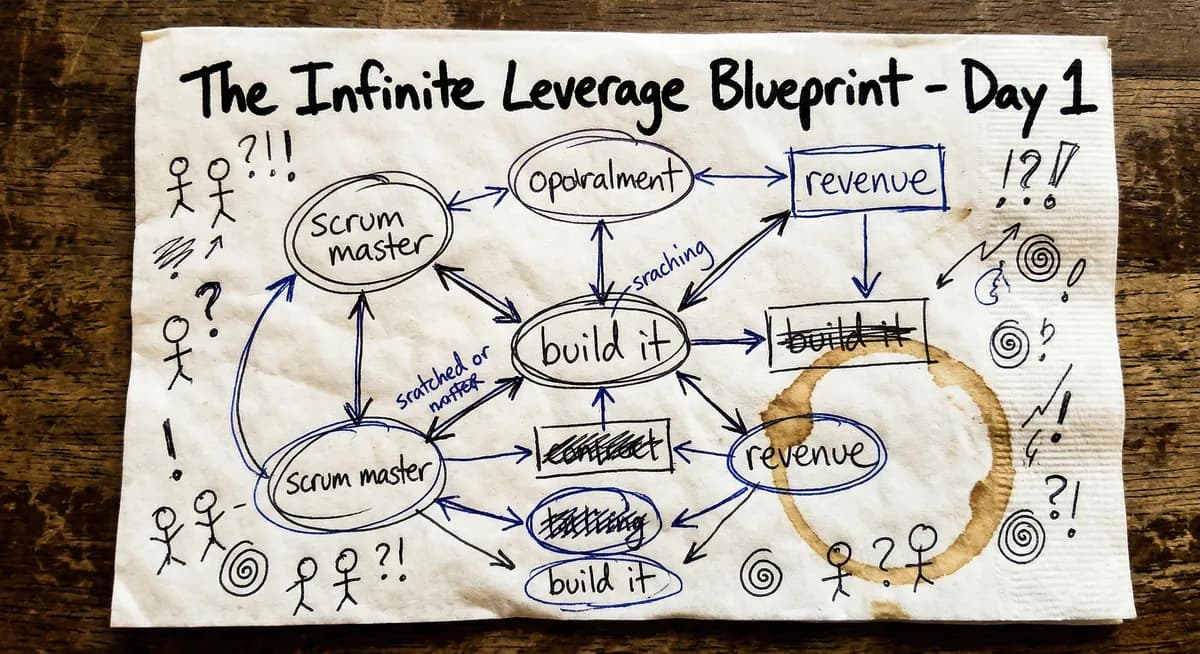 The Infinite Leverage Blueprint - Day 1
?!!
!?!
scrum
master
opolralment
revenue
?
sraching
build it
build it
sratched or
!
scrum master
revenue
?!
?!
build it
?